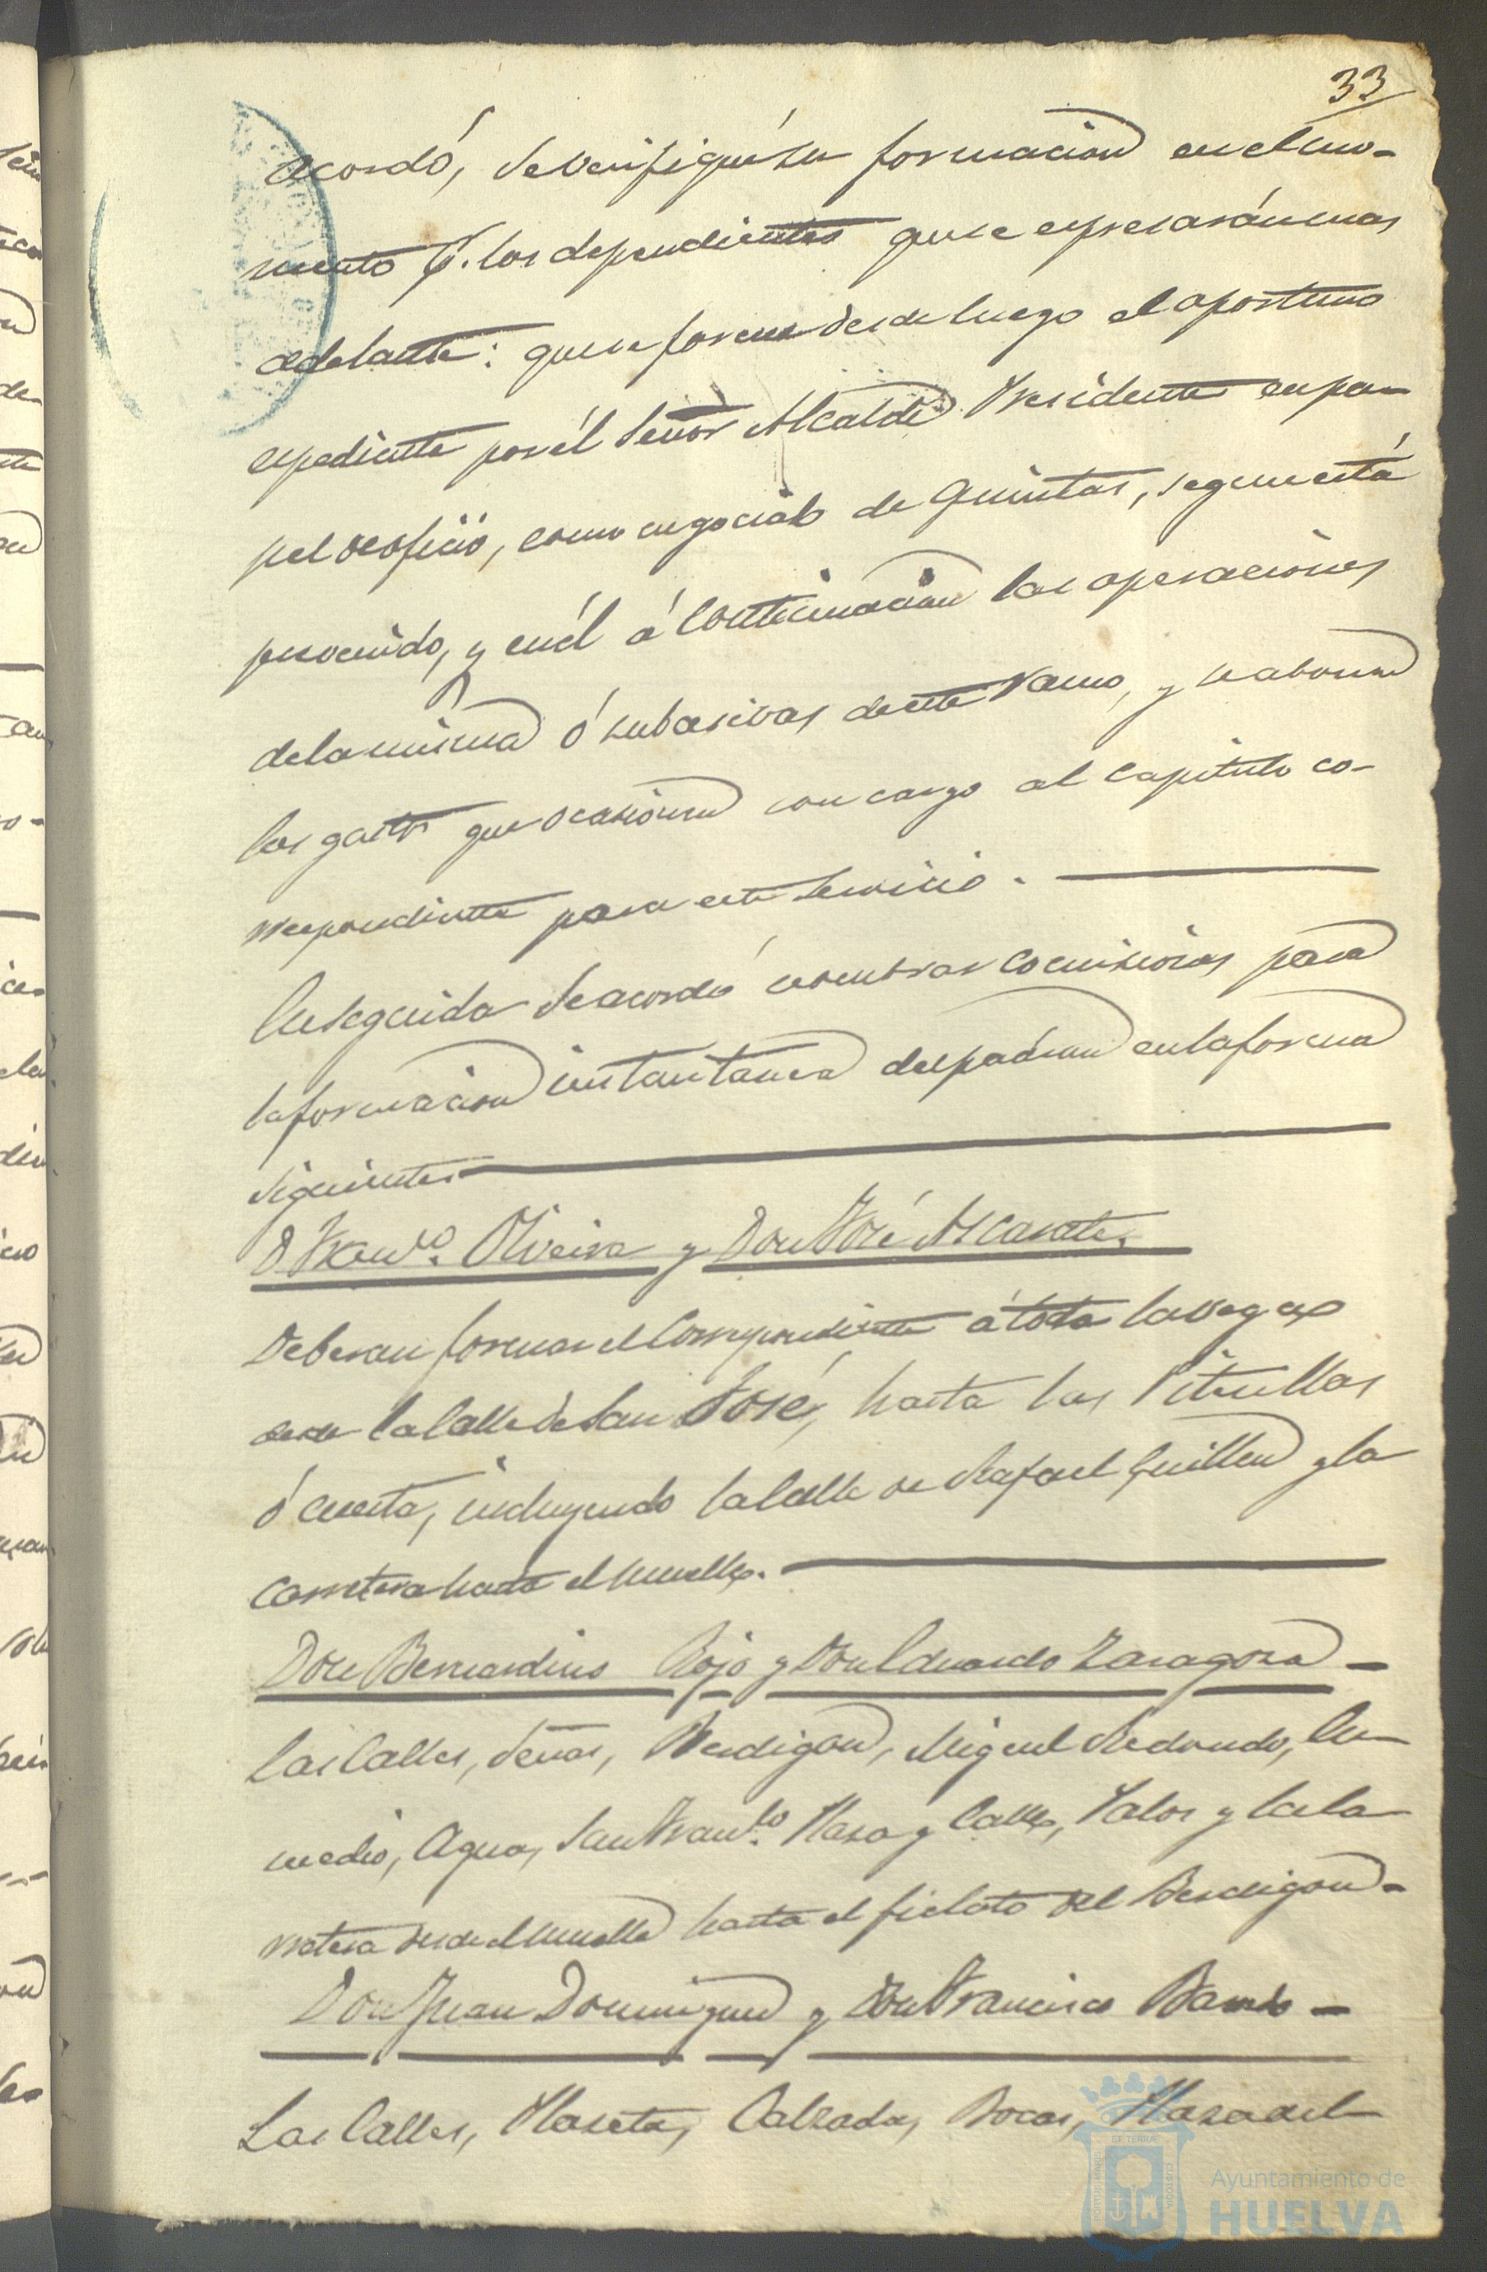 33
acordó, se verifique su formacion en el mo-
mento pr. los dependientes que se espresarán mas
adelante: que se forme desde luego el oportuno
espediente por el Señor Alcalde Presidente en pa-
pel de oficio, como negociado de Quintas, segun está
prevenido, y en él á continuacion las operaciones
de la misma ó subasivas de este ramo, y se abonen
los gastos que ocasionen con cargo al Capitulo co-
rrespondiente para este servicio.
Enseguida se acordó nombrar comisiones para
la formacion instantanea del padron en la forma
siguiente
D. Franco. Oliveira y Don José Alcarate.
Deberan formar el Correspondiente á toda la vega
desde la Calle de San José, hasta las
ó cuesta, incluyendo la Calle de Rafael Guillen y la
carretera hasta el muelle.
Don Bernardino Rojo y Don Eduardo Zaragoza -
Las Calles, Señas, Berdigon, Miguel Redondo, En
medio, Agua, San Franco. Plaza y Calle, Palos y la Ca
rretera desde el muelle hasta el fielato del Berdigon -
Don Juan Dominguez y Don Francisco -
Las Calles, Placeta, Calzada, Bocas, Plaza del
Ayuntamiento de
HUELVA